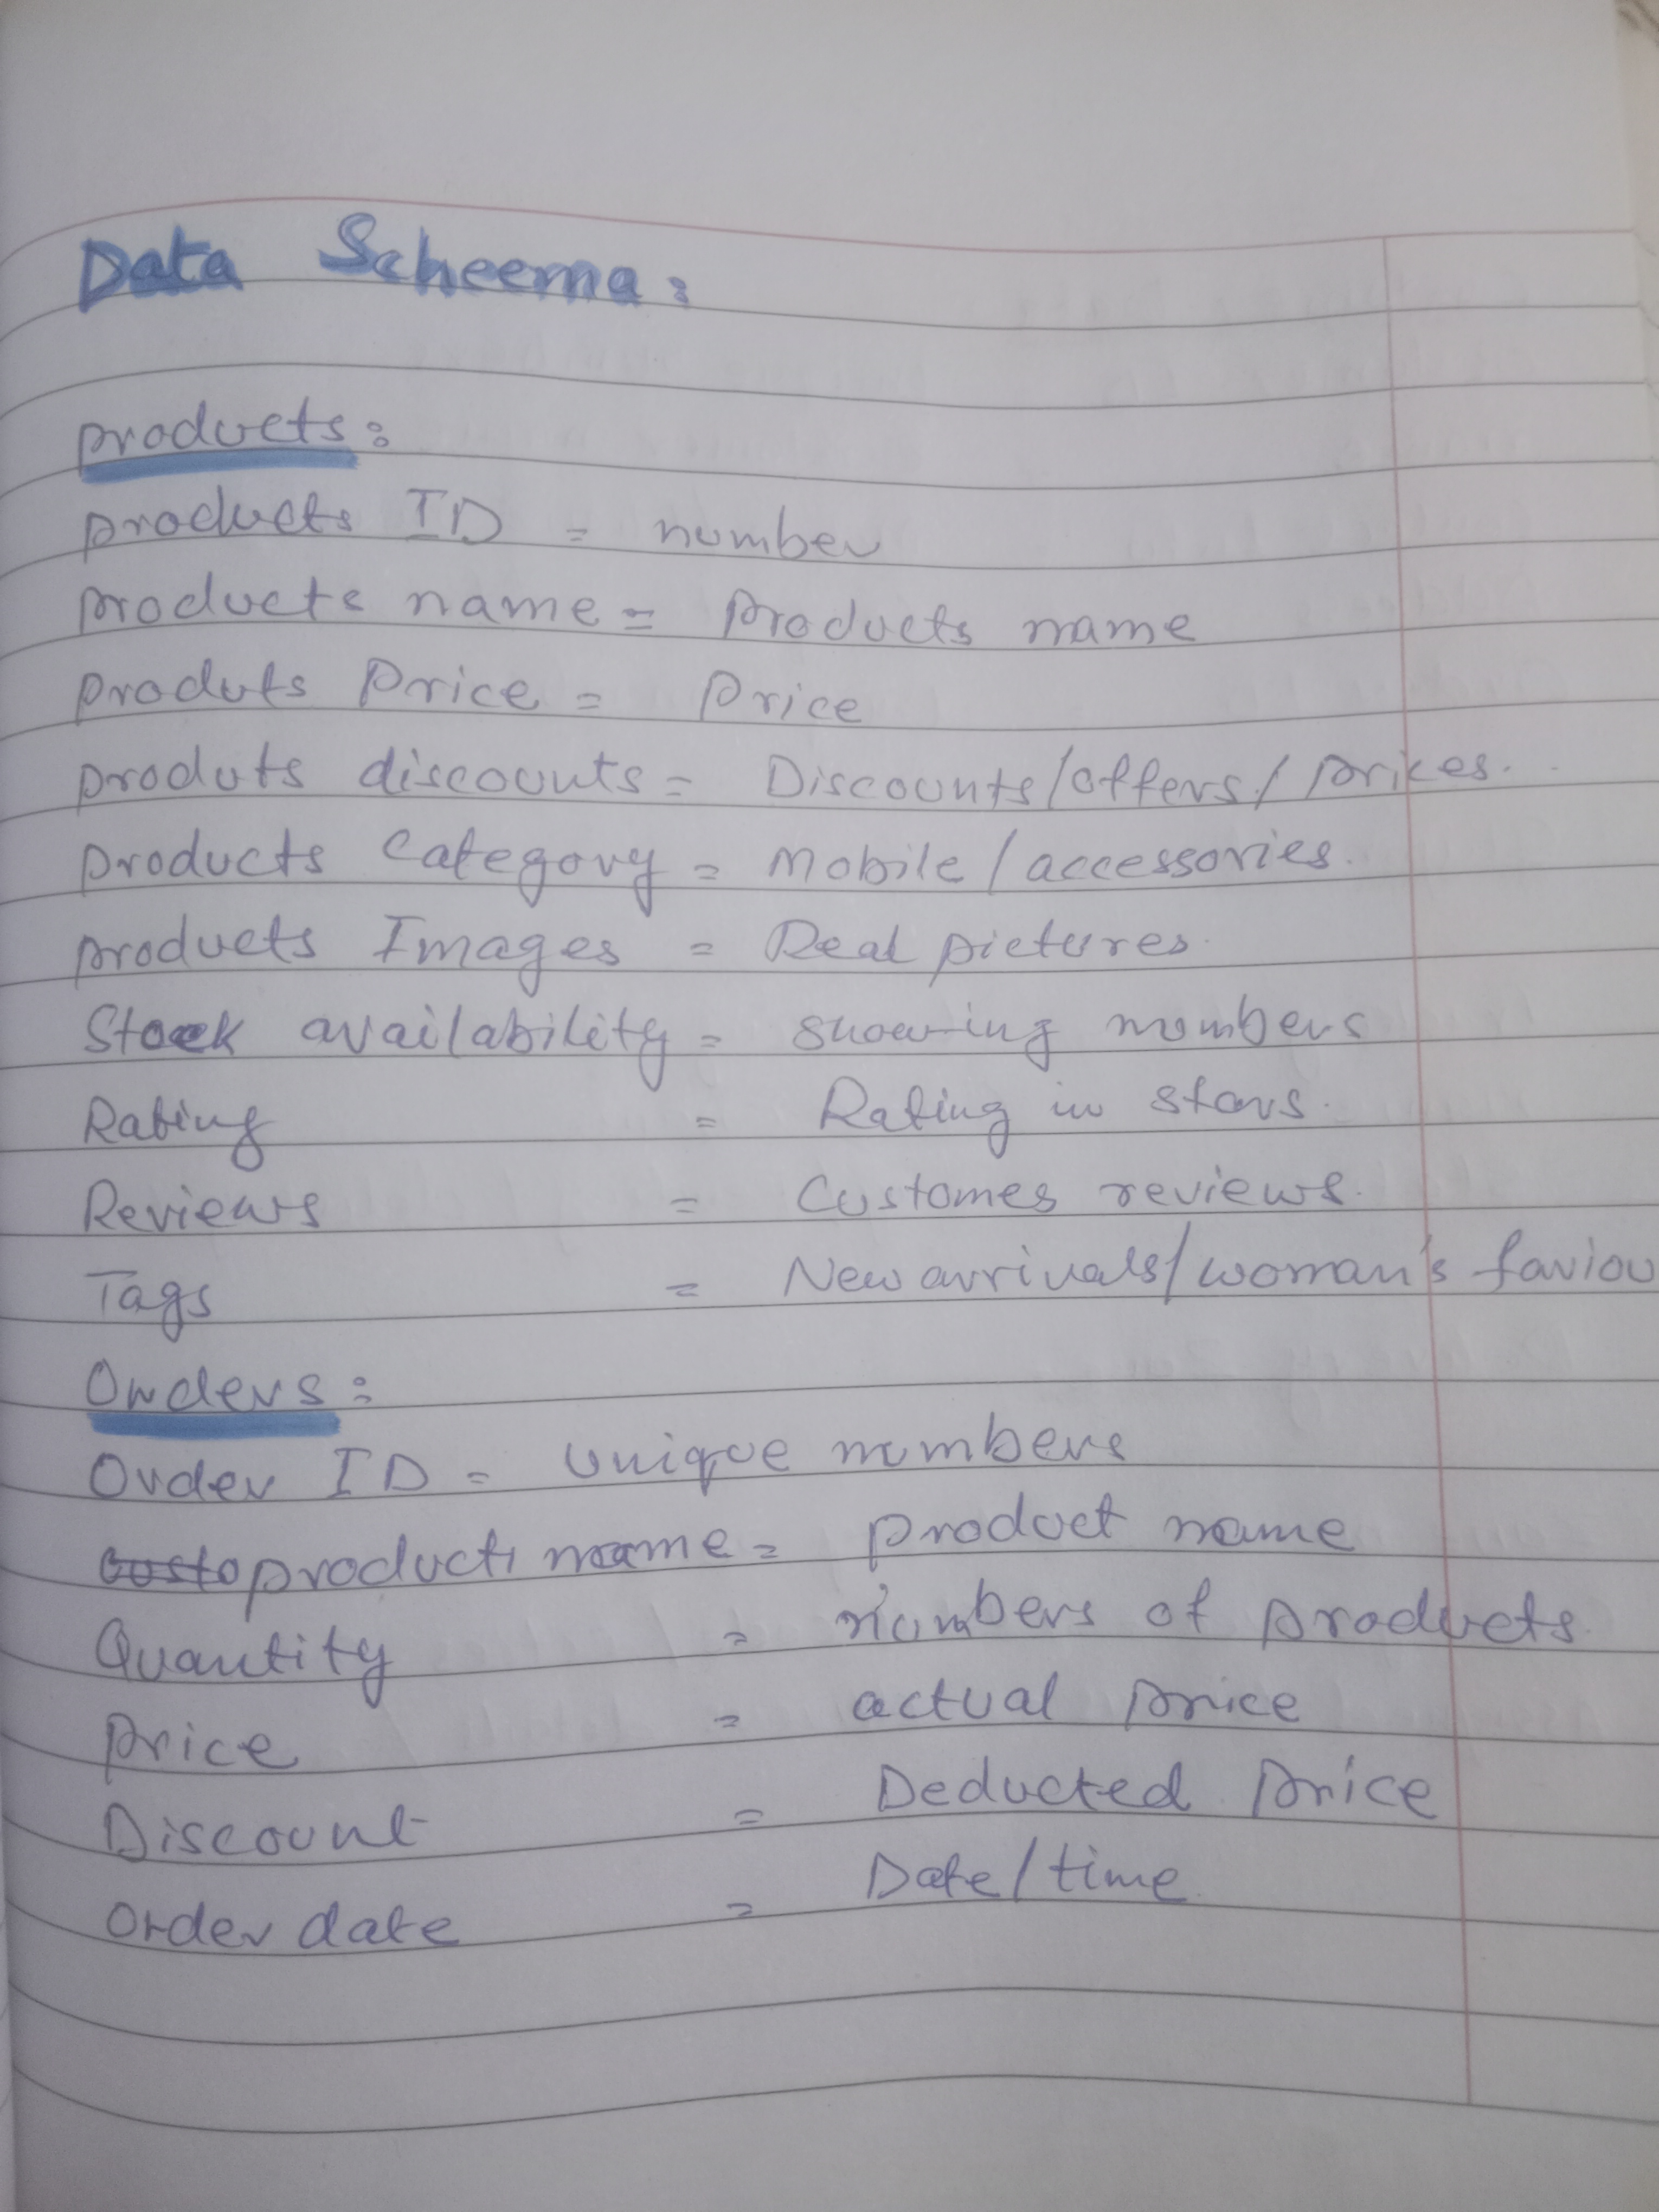 Data Scheema:
products:
products ID = number
products name = products name
produts Price = Price
produts discounts = Discounts/offers/prices.
products Category = Mobile/accessories.
products Images = Real pictures.
Stock availability = showing numbers
Rating = Rating in stars.
Reviews = Customes reviews.
Tags = New arrivals/woman's faviou
Orders:
Order ID = unique numbers
product name = product name
Quantity = numbers of products.
price = actual price
Discount = Deducted price
Order date = Date/time